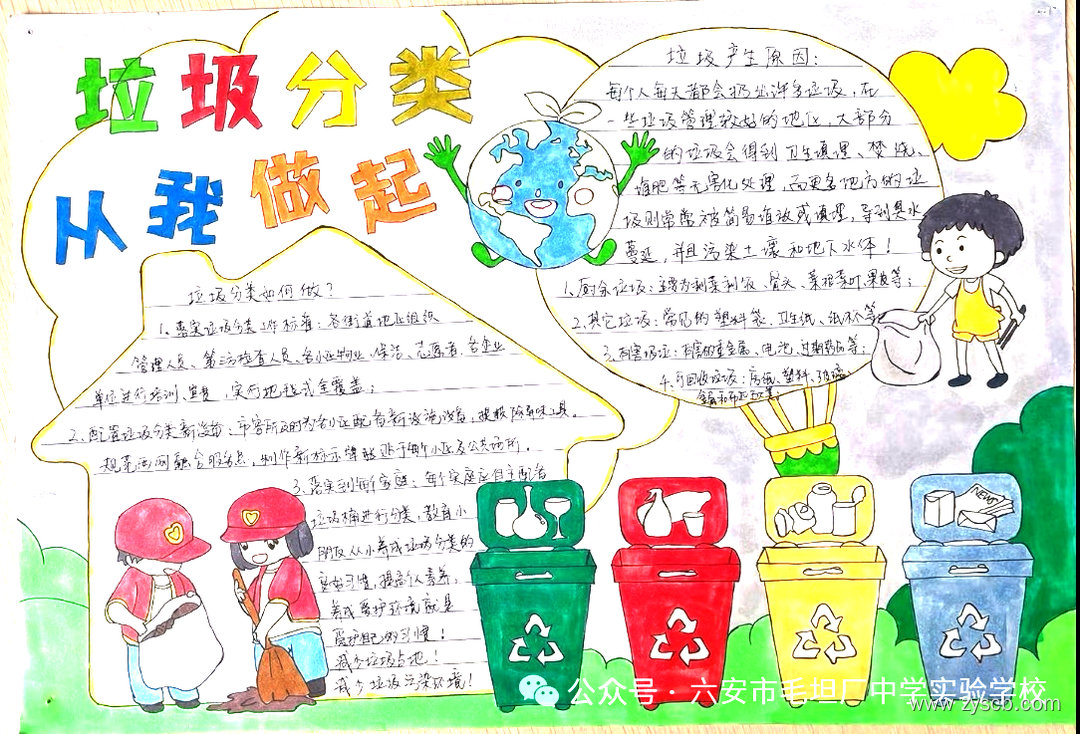 垃圾分类
从我做起
垃圾产生原因：
每个人每天都会扔出许多垃圾，在
一些垃圾管理较好的地区，大部分
的垃圾会得到卫生填埋、焚烧、
堆肥等无害化处理，而更多地方的垃
圾则常常被简易堆放或填埋，导致臭水
蔓延，并且污染土壤和地下水体！
1、厨余垃圾：主要为剩菜剩饭、骨头、菜根菜叶、果皮等；
2、其它垃圾：常见的塑料袋、卫生纸、纸杯等
3、有害垃圾：有害的重金属、电池、过期药品等；
4、可回收垃圾：废纸、塑料、玻璃、
金属和布料五大类；
垃圾分类如何做？
1、落实垃圾分类工作标准：各街道地区组织
管理人员、第三方检查人员、各小区物业、保洁、志愿者、各企业
单位进行培训、宣贯，实行地程式全覆盖；
2、配置垃圾分类新设施：
规范两网融合服务点，制作新标示牌
3、落实到每个家庭：每个家庭应自主配备
垃圾桶进行分类，教育小
朋友从小养成垃圾分类的
良好习惯，提高个人素养，
养成爱护环境就是
爱护自己的习惯！
减少垃圾占地！
减少垃圾污染环境！
NEWS
公众号·六安市毛坦厂中学实验学校
www.zyscb.com